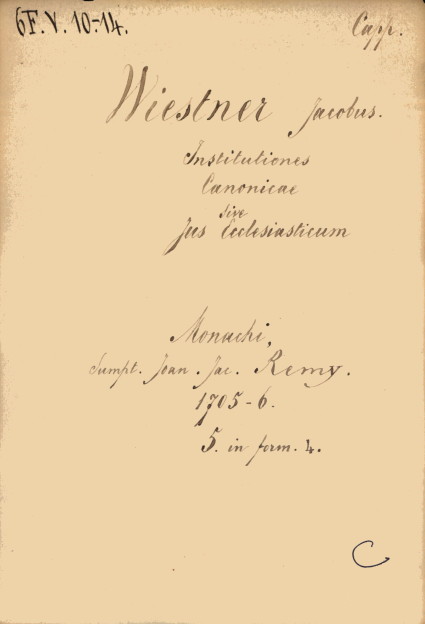 6F. V. 10.-14.
Capp.
Wiestner Jacobus.
Institutiones
Canonicae
sive
Jus Ecclesiasticum
Monachi,
Sumpt. Joan. Jac. Remy.
1705-6.
5. in form. 4.
C